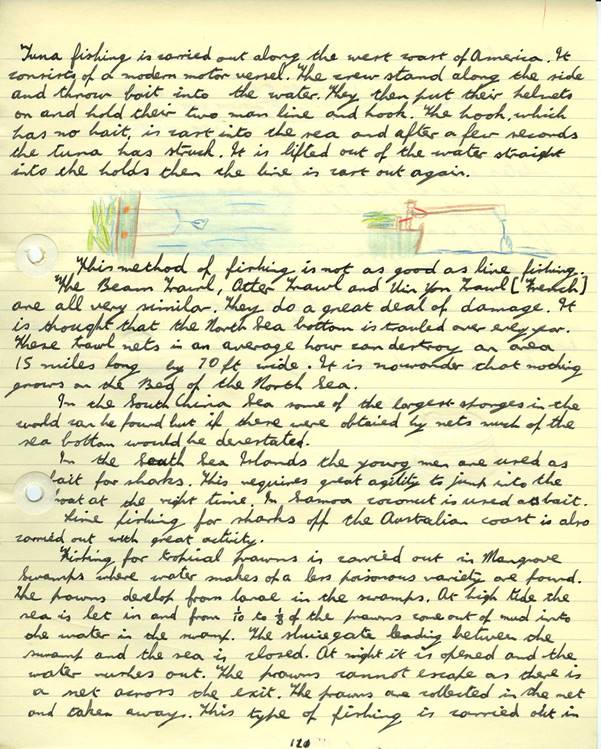 Tuna fishing is carried out along the west coast of America. It
consists of a modern motor vessel. The crew stand along the side
and throw bait into the water. They then put their helmets
on and hold their two man line and hook. The hook, which
has no bait, is cast into the sea and after a few seconds
the tuna has struck. It is lifted out of the water straight
into the holds then the line is cast out again.
This method of fishing is not as good as line fishing.
The Beam Trawl, Otter Trawl and Vin Yon Trawl [French]
are all very similar. They do a great deal of damage. It
is thought that the North Sea bottom is trauled over evey year.
These trawl nets in an average hour can destroy an area
15 miles long by 70 ft wide. It is nowonder that nothing
grows on the Bed of the North Sea.
In the South China Sea some of the largest sponges in the
world can be found but if there were obtaied by nets much of the
sea bottom would be devestated.
In the South Sea Islands the young men are used as
bait for sharks. This requires great agility to jump into the
boat at the right time. In Samoa coconut is used as bait.
Line fishing for sharks off the Australian coast is also
carried out with great activity.
Fishing for tropical prawns is carried out in Mangrove
Swamps where water snakes of a less poisonous variety are found.
The prawns develop from larvae in the swamps. At high tide the
sea is let in and from 1/10 to 1/8 of the prawns come out of mud into
the water in the swamp. The sluicegate leading between the
swamp and the sea is closed. At night it is opened and the
water rushes out. The prawns cannot escape as there is
a net across the exit. The prawns are collected in the net
and taken away. This type of fishing is carried out in
120